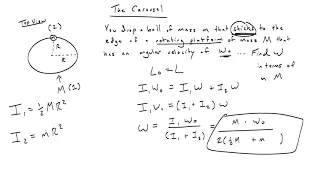 The Carousel
Top View
(2)
R
R
M (1)
I₁ = ½MR²
I₂ = mR²
You drop a ball of mass m that sticks to the
edge of a rotating platform of mass M that
has an angular velocity of ω₀ ... Find ω
in terms of
m M
L₀ = L
I₁ω₀ = I₁ω + I₂ω
I₁ω₀ = (I₁ + I₂) ω
ω = I₁ω₀ / (I₁ + I₂) = M · ω₀ / 2(½M + m)